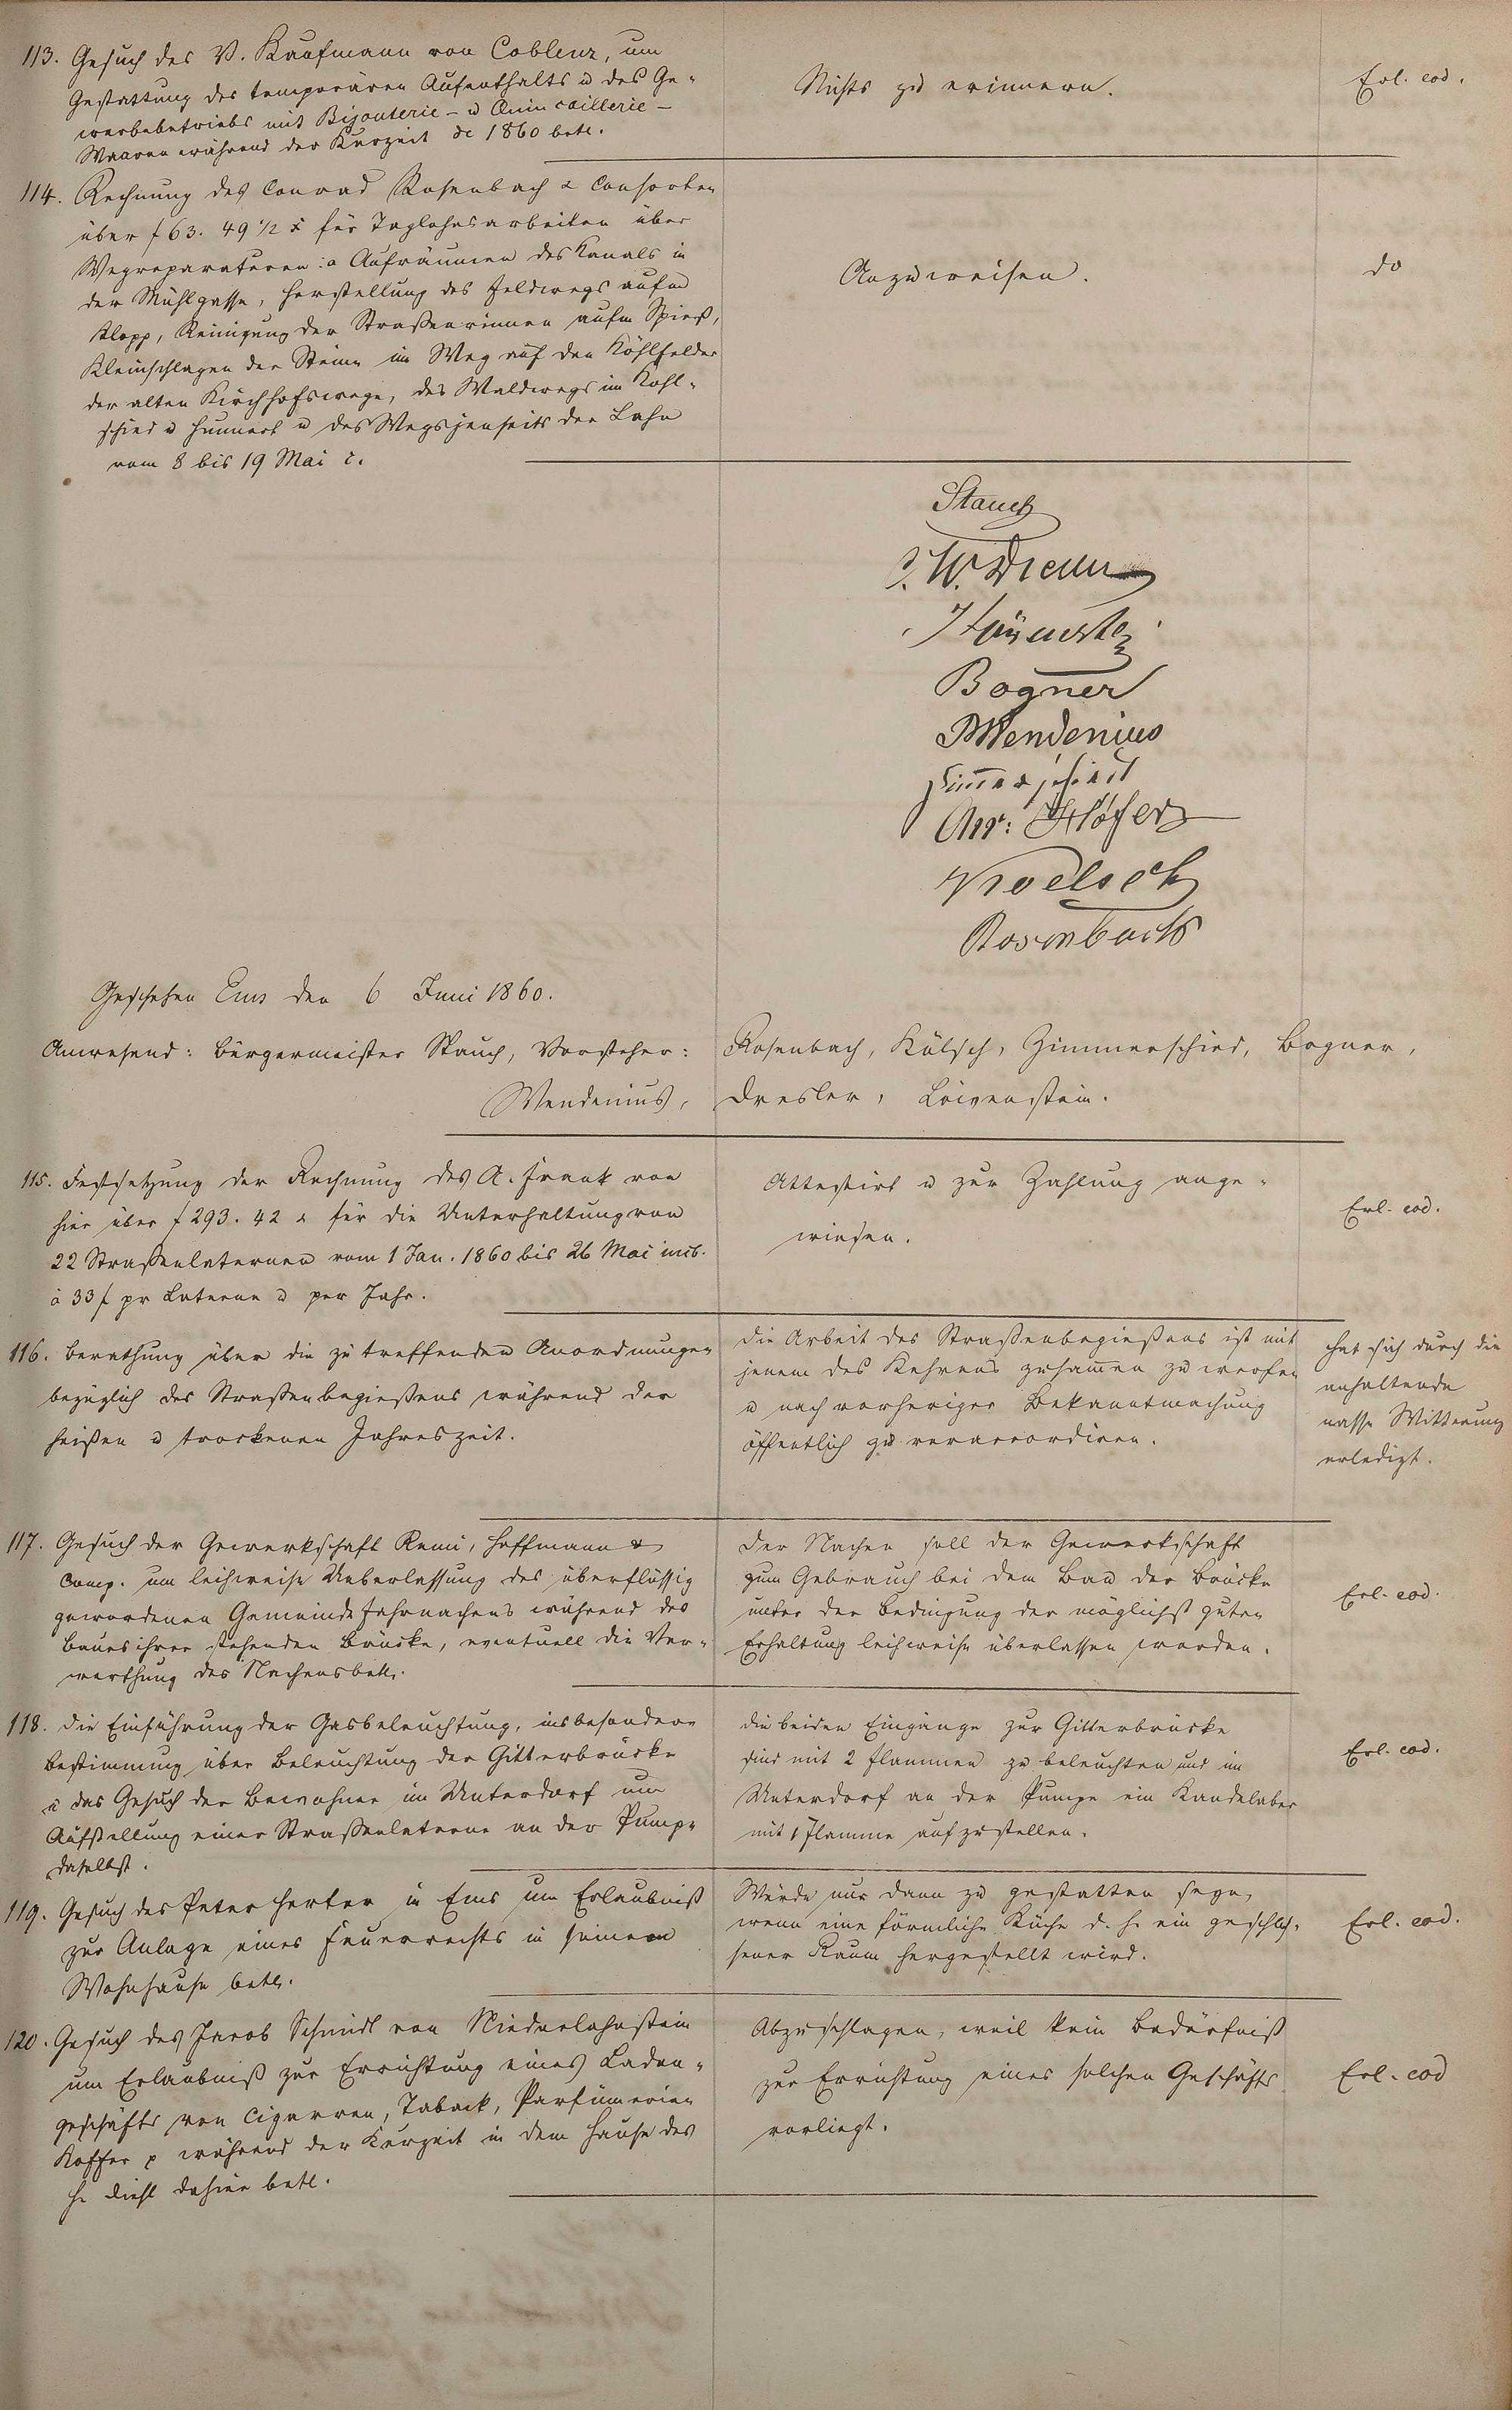 113. Gesuch des V. Kaufmann von Coblenz, um
Gestattung des temporären Aufenthalts u des Ge-
werbebetriebs mit Bijouterie- u Quincaillerie-
Waaren während der Kurzeit de 1860 betr.
Nichts zu erinnern.
Erl. eod.
114. Rechnung des Conrad Rosenbach & Consorten
über f 63. 49 1/2 x für Taglohnsarbeiten über
Wegreparaturen: a Aufräumen des Kanals in
der Mühlgasse, Herstellung des Feldwegs aufm
Klopp, Reinigung der Straßenrinnen aufm Spieß,
Kleinschlagen der Steine im Weg auf den
der alten Kirchhofswege, des Waldwegs im Kohl-
schied u u des Wegs jenseits der Lahn
vom 8 bis 19 Mai c.
Anzuweisen.
do
Stauch
Bogner
Wendenius
Zimmerschied
Höfer
Koelsch
Rosenbach
Geschehen Ems den 6 Juni 1860.
Anwesend: Bürgermeister Stauch, Vorsteher: Rosenbach, Kölsch, Zimmerschied, Bogner,
Wendenius, Dresler, Löwenstein.
115. Festsetzung der Rechnung des A. Frank von
hier über f 293. 42 x für die Unterhaltung von
22 Straßenlaternen vom 1 Jan. 1860 bis 26 Mai incl.
à 33 f pr Laterne u per Jahr.
Attestirt u zur Zahlung ange-
wiesen.
Erl. eod.
116. Berathung über die zu treffenden Anordnungen
bezüglich des Straßenbegießens während der
heißen u trockenen Jahreszeit.
Die Arbeit des Straßenbegießens ist mit
jenem des Kehrens zusamen zu werfen
u nach vorheriger Bekanntmachung
öffentlich zu veraccordiren.
hat sich durch die
anhaltende
nasse Witterung
erledigt.
117. Gesuch der Gewerkschaft Remi, Hoffmann &
Comp. um leihweise Ueberlassung des überflüssig
gewordenen Gemeinde Fahrnachens während des
Baues ihrer stehenden Brücke, eventuell die Ver-
werthung des Nachens betr.
Der Nachen soll der Gewerkschaft
zum Gebrauch bei dem Bau der Brücke
unter der Bedingung der möglichst guten
Erhaltung leihweise überlassen werden.
Erl. eod.
118. Die Einführung der Gasbeleuchtung, insbesondere
Bestimmung über Beleuchtung der Gitterbrücke
u das Gesuch der Bewohner im Unterdorf um
Aufstellung einer Straßenlaterne an der Pumpe
daselbst.
Die beiden Eingänge zur Gitterbrücke
sind mit 2 Flammen zu beleuchten und im
Unterdorf an der Pumpe ein Kandelaber
mit 1 Flamme aufzustellen.
Erl. eod.
119. Gesuch des Peter Herter in Ems um Erlaubniß
zur Anlage eines Feuerrechts in seinem
Wohnhause betr.
Würde nur dann zu gestatten seyn,
wenn eine förmliche Küche d. h. ein geschlos-
sener Raum hergestellt wird.
Erl. eod.
120. Gesuch des Jacob Schmidt von Niederlahnstein
um Erlaubniß zur Errichtung eines Laden-
geschäfts von Cigarren, Taback, Parfümerien
Koffer p während der Kurzeit in dem Hause des
H. Diehl dahier betr.
Abzuschlagen, weil kein Bedürfniß
zur Errichtung eines solchen Geschäfts
vorliegt.
Erl. eod